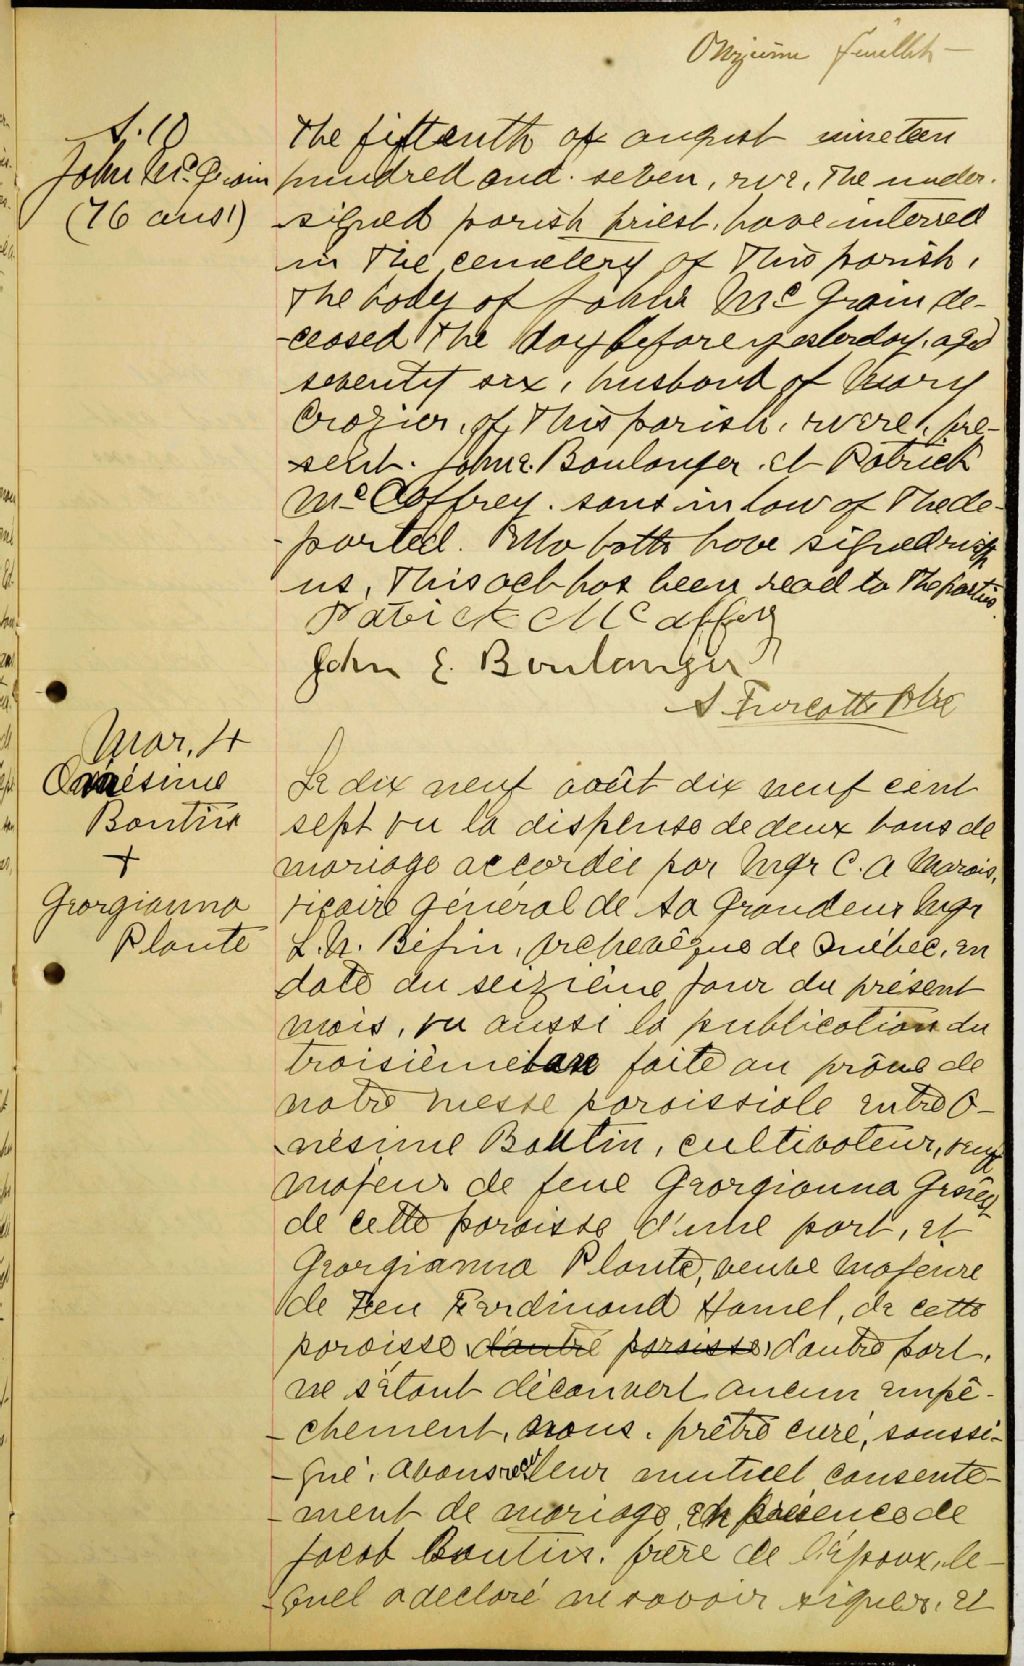 Onzième feuillet —
S. 10
John Mc. Grain
(76 ans!)
The fifteenth of august nineteen
hundred and seven, we, The under-
signed parish priest, have interred
in The cemetery of This parish,
The body of John Mc Grain de-
-ceased The day before yesterday, aged
seventy six, husband of Mary
Crozier, of This parish, were, pre-
-sent. John E. Boulanger et Patrick
Mc Caffrey. sons in law of The de-
-parted. Who both have signed with
us, This act has been read to The parties.
Patrick McCaffery
John E. Boulanger
S Turcotte Ptre
Mar. 4
Onésime
Boutin
+
Georgianna
Plante
Le dix neuf août dix neuf cent
sept vu la dispense de deux bans de
mariage accordée par Mgr C. A Marois,
vicaire général de Sa Grandeur Mgr
L. N. Bégin, Archevêque de Québec, en
date du seizième jour du présent
mois, vu aussi la publication du
troisième ban faite au prône de
notre messe paroissiale entre O-
nésime Boutin, cultivateur, veuf
majeur de feue Georgianna
de cette paroisse d'une part, et
Georgianna Plante, veuve majeure
de Feu Ferdinand Hamel, de cette
paroisse, d'autre paroisse, d'autre part,
ne s'étant découvert aucun empê-
-chement, nous, prêtre curé, soussi-
-gné, avons reçu leur mutuel consente-
-ment de mariage en présence de
Jacob Boutin, frère de l'époux, le-
-quel a declaré ne savoir signer, et